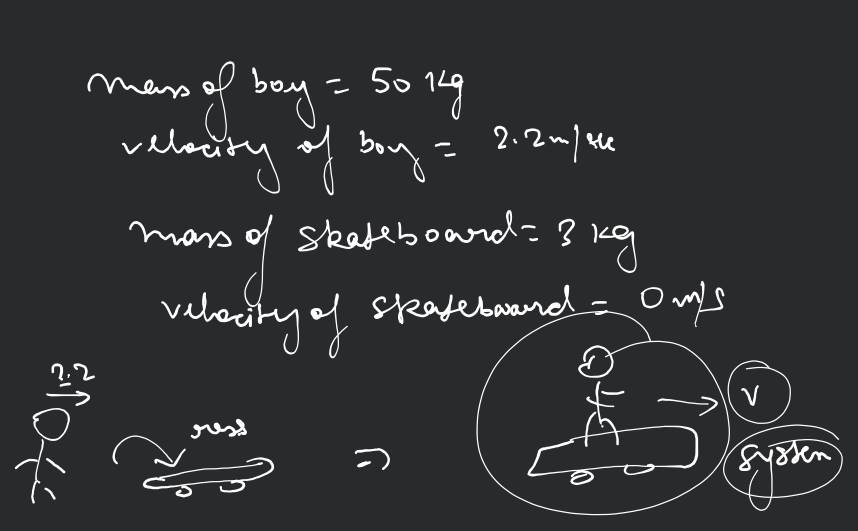 mass of boy = 50 kg
velocity of boy = 2.2 m/sec
mass of skateboard = 3 kg
velocity of skateboard = 0 m/s
2.2
rest
⇒
v
system